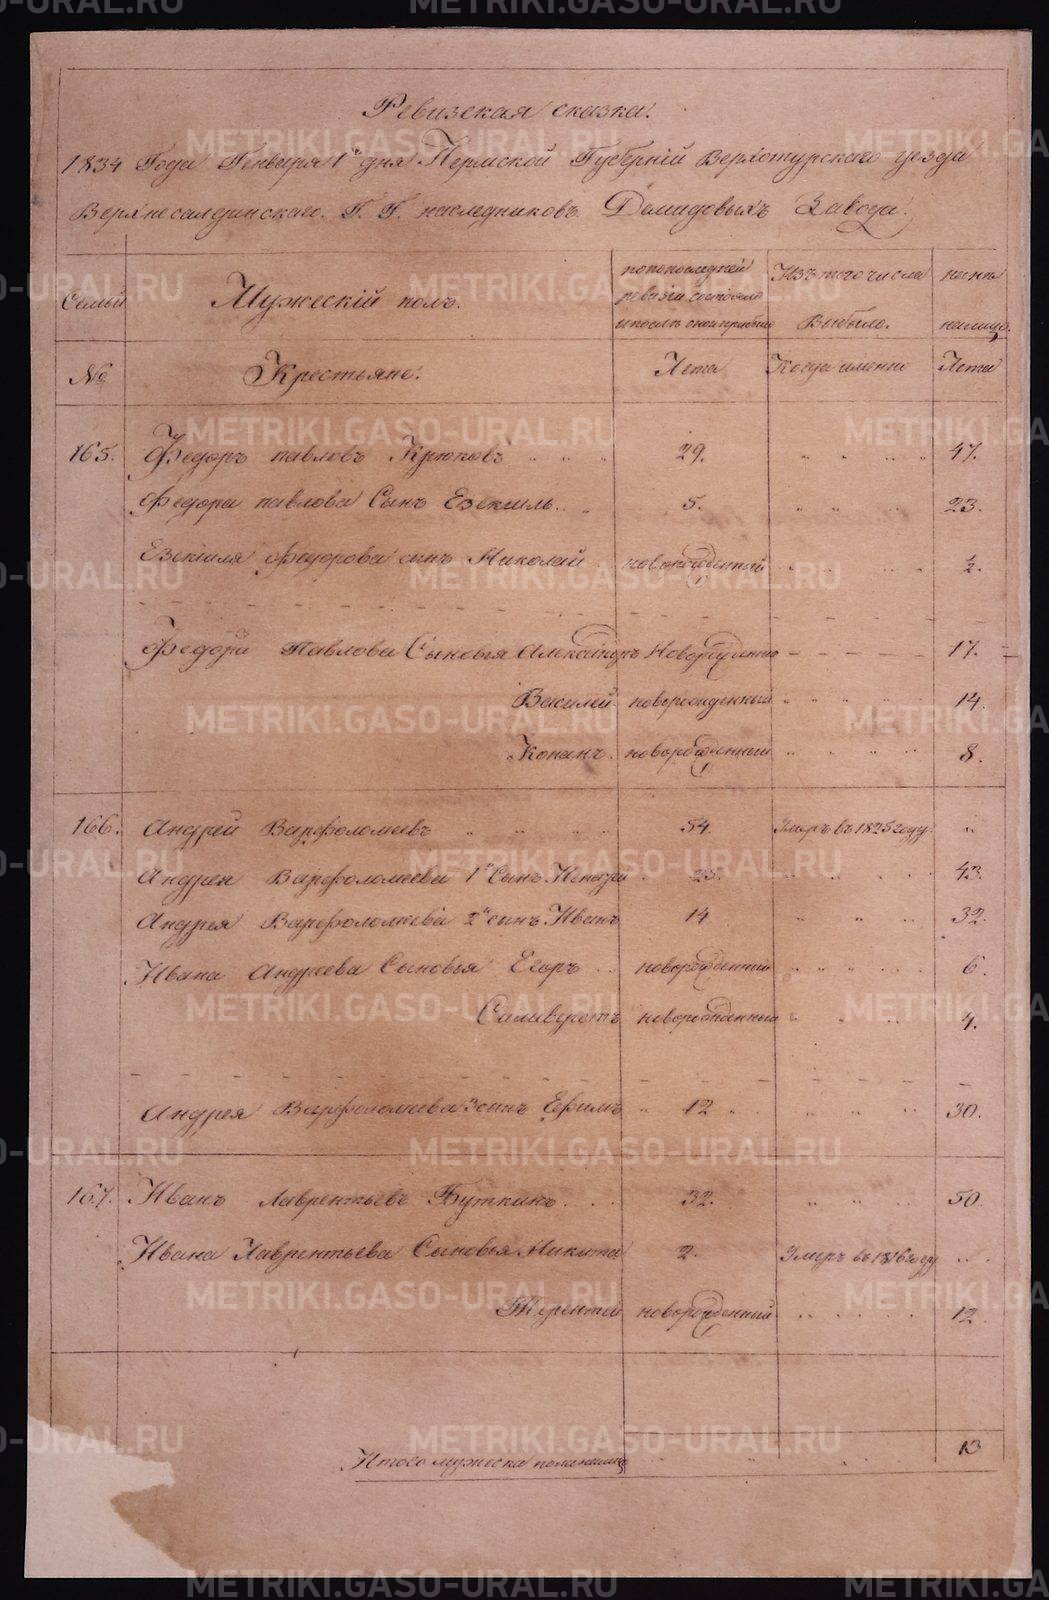 Ревизская сказка.
1834 Года Генваря 1 дня Пермской Губерній Верхотурскаго уезда
Верхнесалдинскаго Г. Г. наследниковъ Демидовыхъ Завода.
Семьи Мужескій полъ. попоследней ревизіи состояло и после оной прибыло Изъ того числа Выбыло. ныне налицо.
№ Крестьяне. Лета Когда именно Лета
165. Федоръ павловъ Крюковъ 29. 47.
Федора павлова Сынъ Езекииль 5. 23.
Езекіиля Федорова сынъ Николай новорожденной ½.
Федора Павлова Сыновья Александръ Новорожденно 17.
Василей новорожденный 14.
Конанъ. новорожденный 8.
166. Андрей Варфоломеевъ 54. Умеръ въ 1825 году. "
Андрея Варфоломеева 1й Сынъ 25. 43.
Андрея Варфоломеева 2й сынъ Иванъ 14 32.
Ивана Андреева Сыновья Егоръ новорожденный 6.
Саливерстъ новорожденный 4.
Андрея Варфоломеева 3 сынъ Ефимъ 12 30.
167. Иванъ Лаврентьевъ Буткинъ 32. 50.
Ивана Лаврентьева Сыновья Никита 2. Умеръ въ 1816 году
Терентей новорожденный 12
Итого мужеска пола налицо 13
METRIKI.GASO-URAL.RU